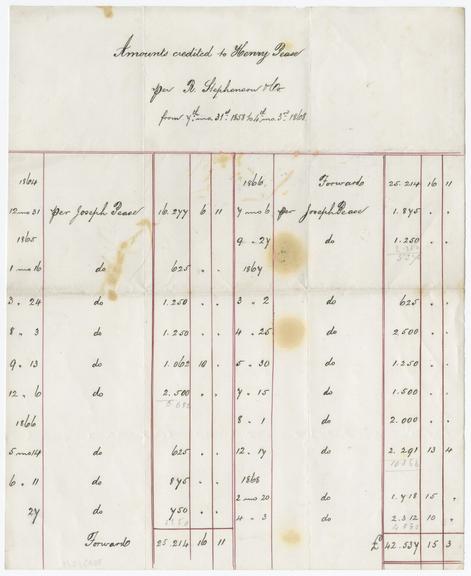 Amounts credited to Henry Pease
per R. Stephenson & Co
from 7th mo. 31st 1858 to 4th mo. 3rd 1868.
1864
12 mo 31 per Joseph Pease 16.277 6 11
1865
1 mo 16 do 625 . .
3 . 24 do 1.250 . .
8 . 3 do 1.250 . .
9 . 13 do 1.062 10 .
12 . 6 do 2.500 . .
1866
5 mo 14 do 625 . .
6 . 11 do 875 . .
27 do 750 . .
Forward 25.214 16 11
1866 Forward 25.214 16 11
7 mo 6 per Joseph Pease 1.875 . .
9 . 27 do 1.250 . .
1867
3 . 2 do 625 . .
4 . 25 do 2,500 . .
5 . 30 do 1.250 . .
7 . 15 do 1.500 . .
8 . 1 do 2.000 . .
12 . 17 do 2.291 13 4
1868
2 mo 20 do 1.718 15 .
4 . 3 do 2.312 10 .
£ 42.537 15 3